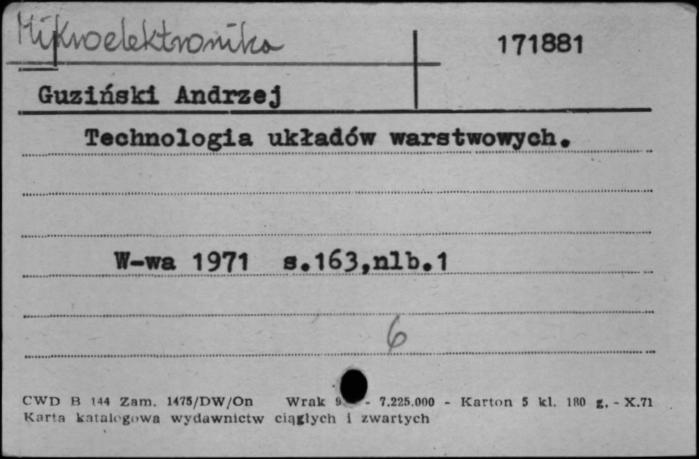 Mikroelektronika
171881
Guziński Andrzej
Technologia układów warstwowych.
W-wa 1971 s.163,nlb.1
6
CWD B 144 Zam. 1475/DW/On Wrak - 7.225.000 - Karton 5 kl. 180 g. - X.71
Karta katalogowa wydawnictw ciągłych i zwartych